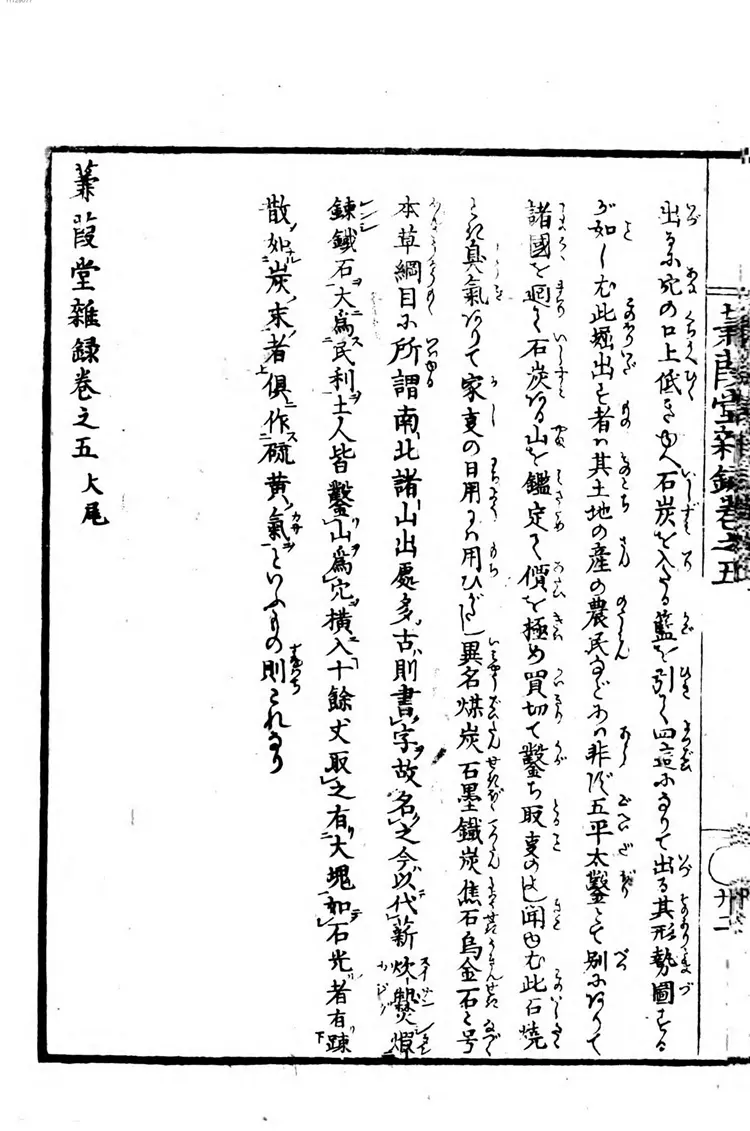 出るに坑の口上低きゆへ石炭を入たる籃を引く四這になりて出る其形勢圖する
が如しむ此堀出す者ハ其土地の産の農民などにハ非ず五平太鑿とて別にありて
諸國を廻りて石炭ある山を鑑定して價を極め買切て鑿ち取事のよし聞ゆむ此石燒
ときハ臭氣ありて家事の日用にハ用ひがたし異名煤炭石墨鐵炭焦石烏金石と号
本草綱目に所謂南北諸山出處多古則書字故名之今以代薪炊爨煆
鍊鐵石大爲民利土人皆鑿山爲穴橫入十餘丈取之有大塊如石光者有踈
散如炭末者俱作硫黄氣といふもの則これなり
蒹葭堂雜録卷之五 大尾
蒹葭堂雜録卷之五
廿二